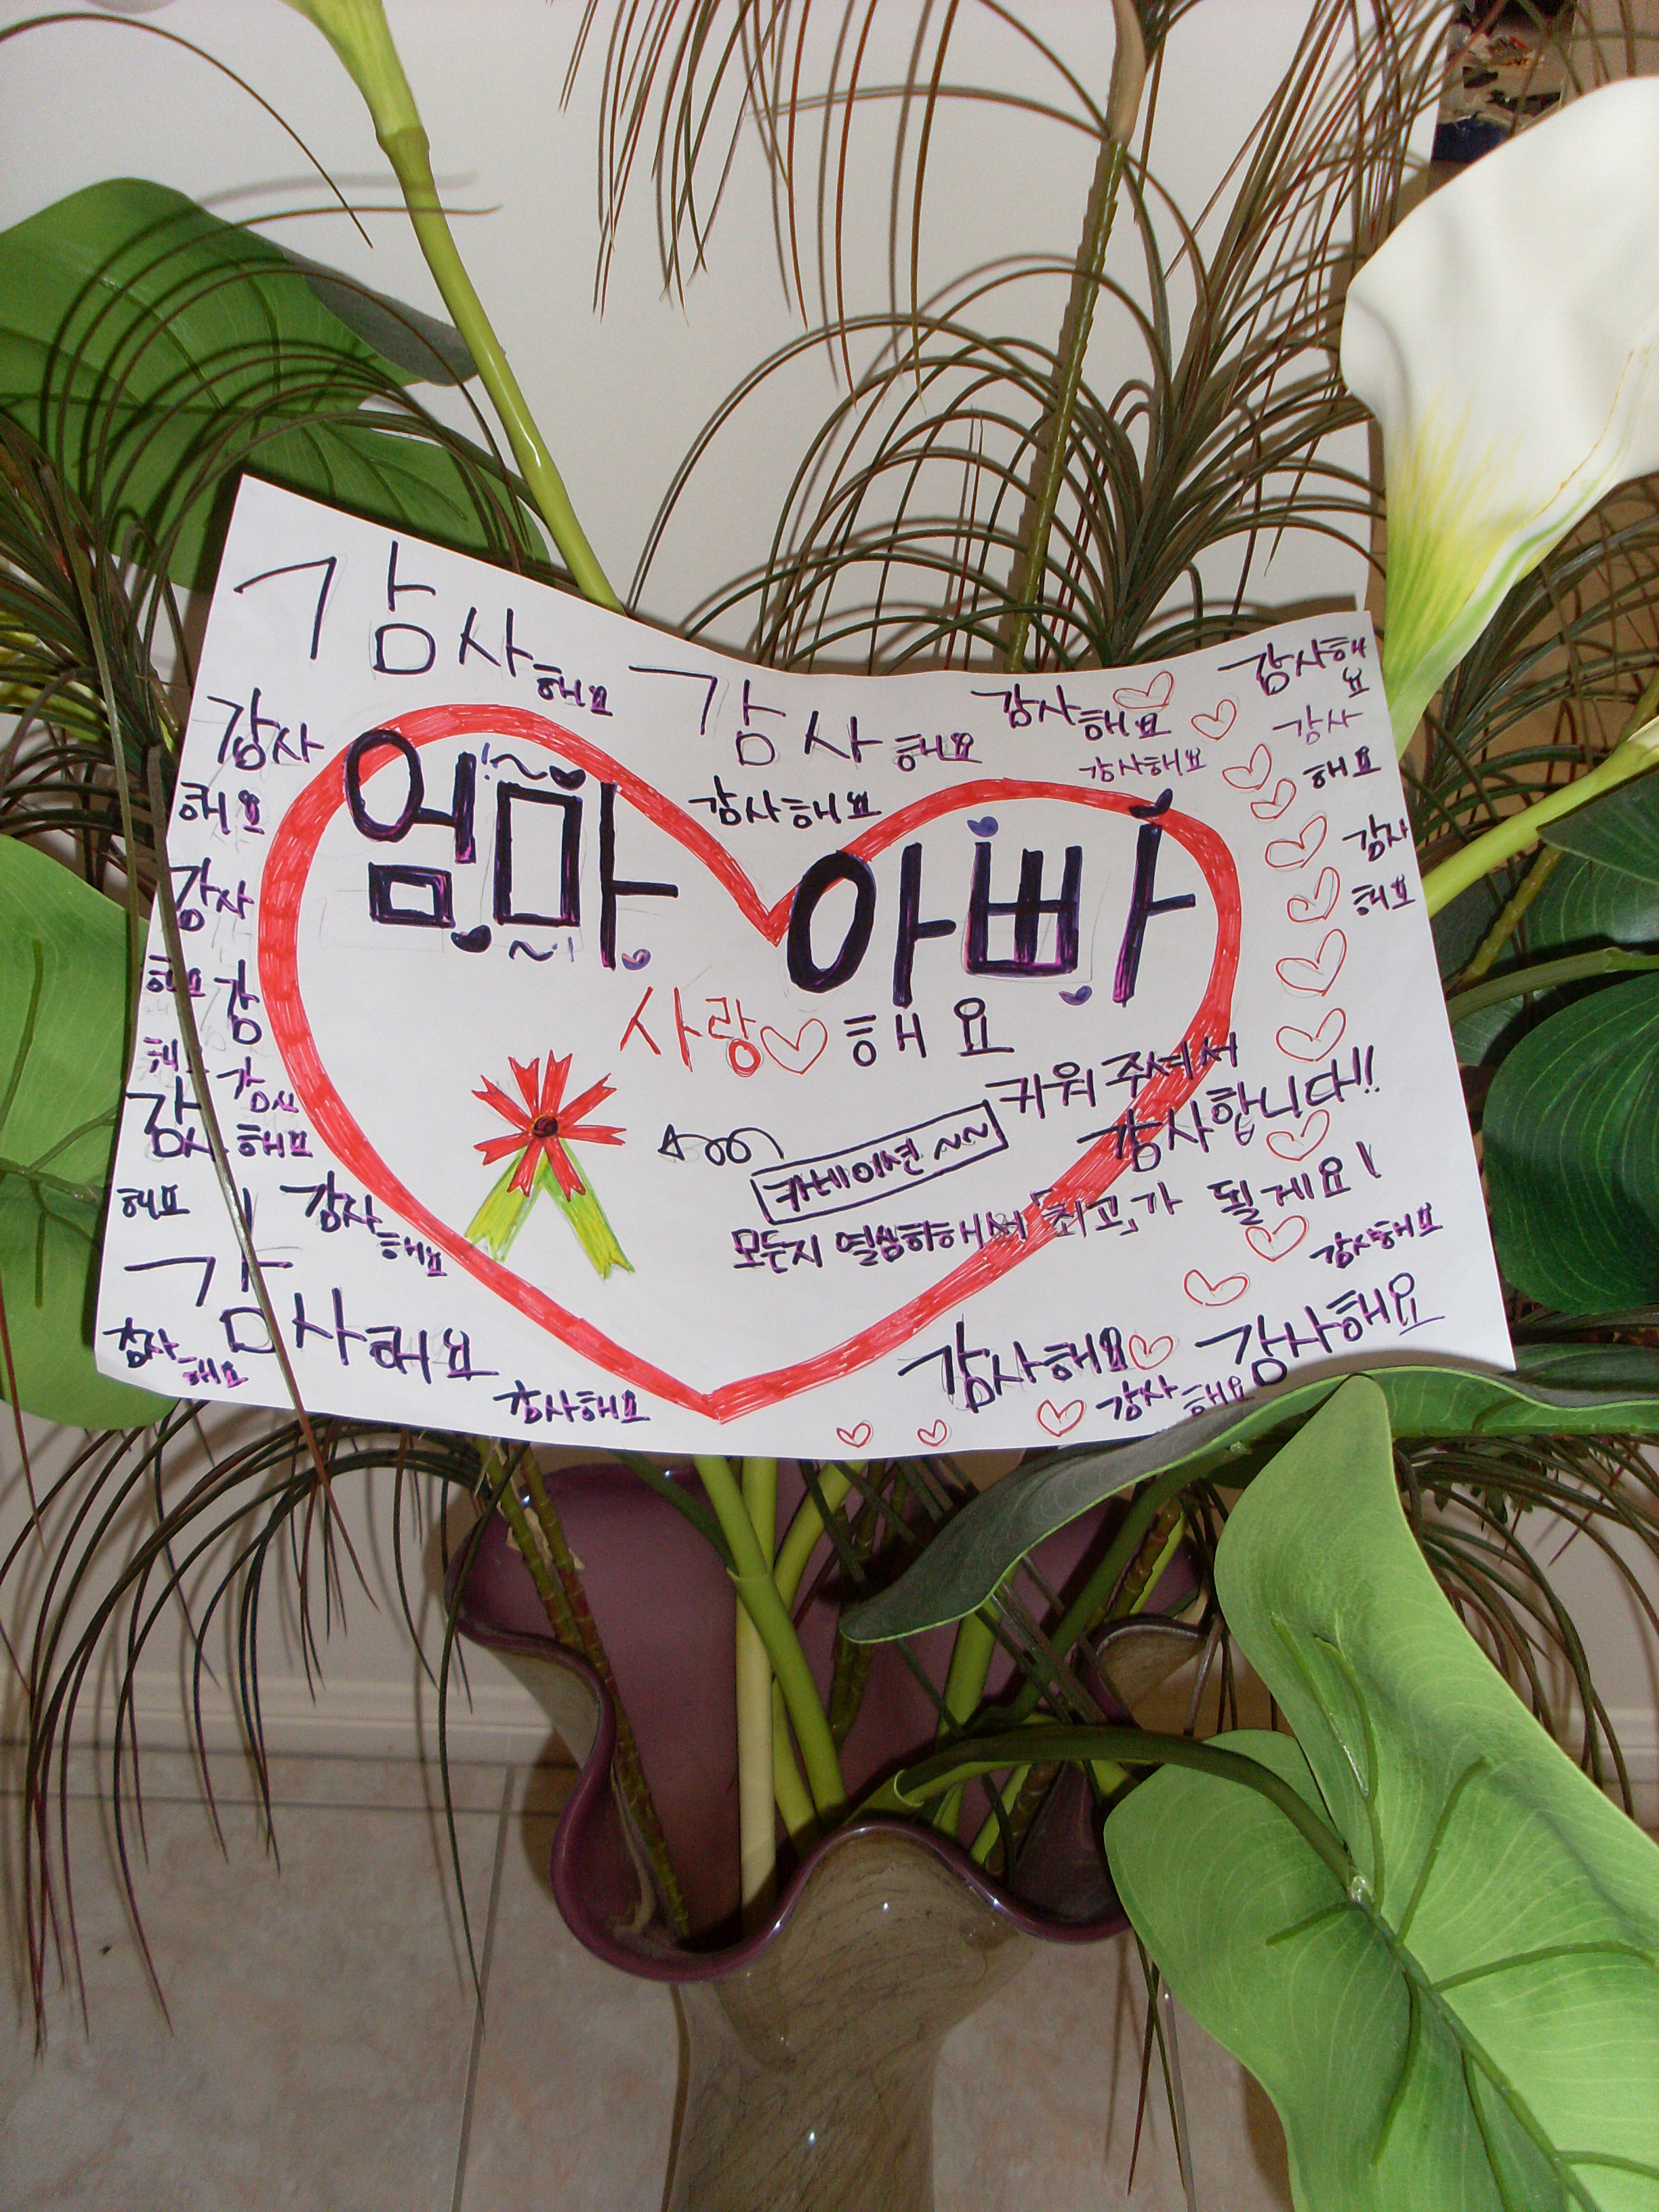 감사해요
감사해요
감사해요
감사해요
감사
해요
감사해요
감사해요
감사
해요
엄마 아빠
감사
해요
감사
해요
사랑♡해요
키워 주셔서
감사합니다!!
카네이션~~
모든지 열심히해서 「최고」가 될게요!
감사해요
해요
감사
해요
감사해요
감사해요
감사해요
감사해요
감사해요
감사해요
감사해요